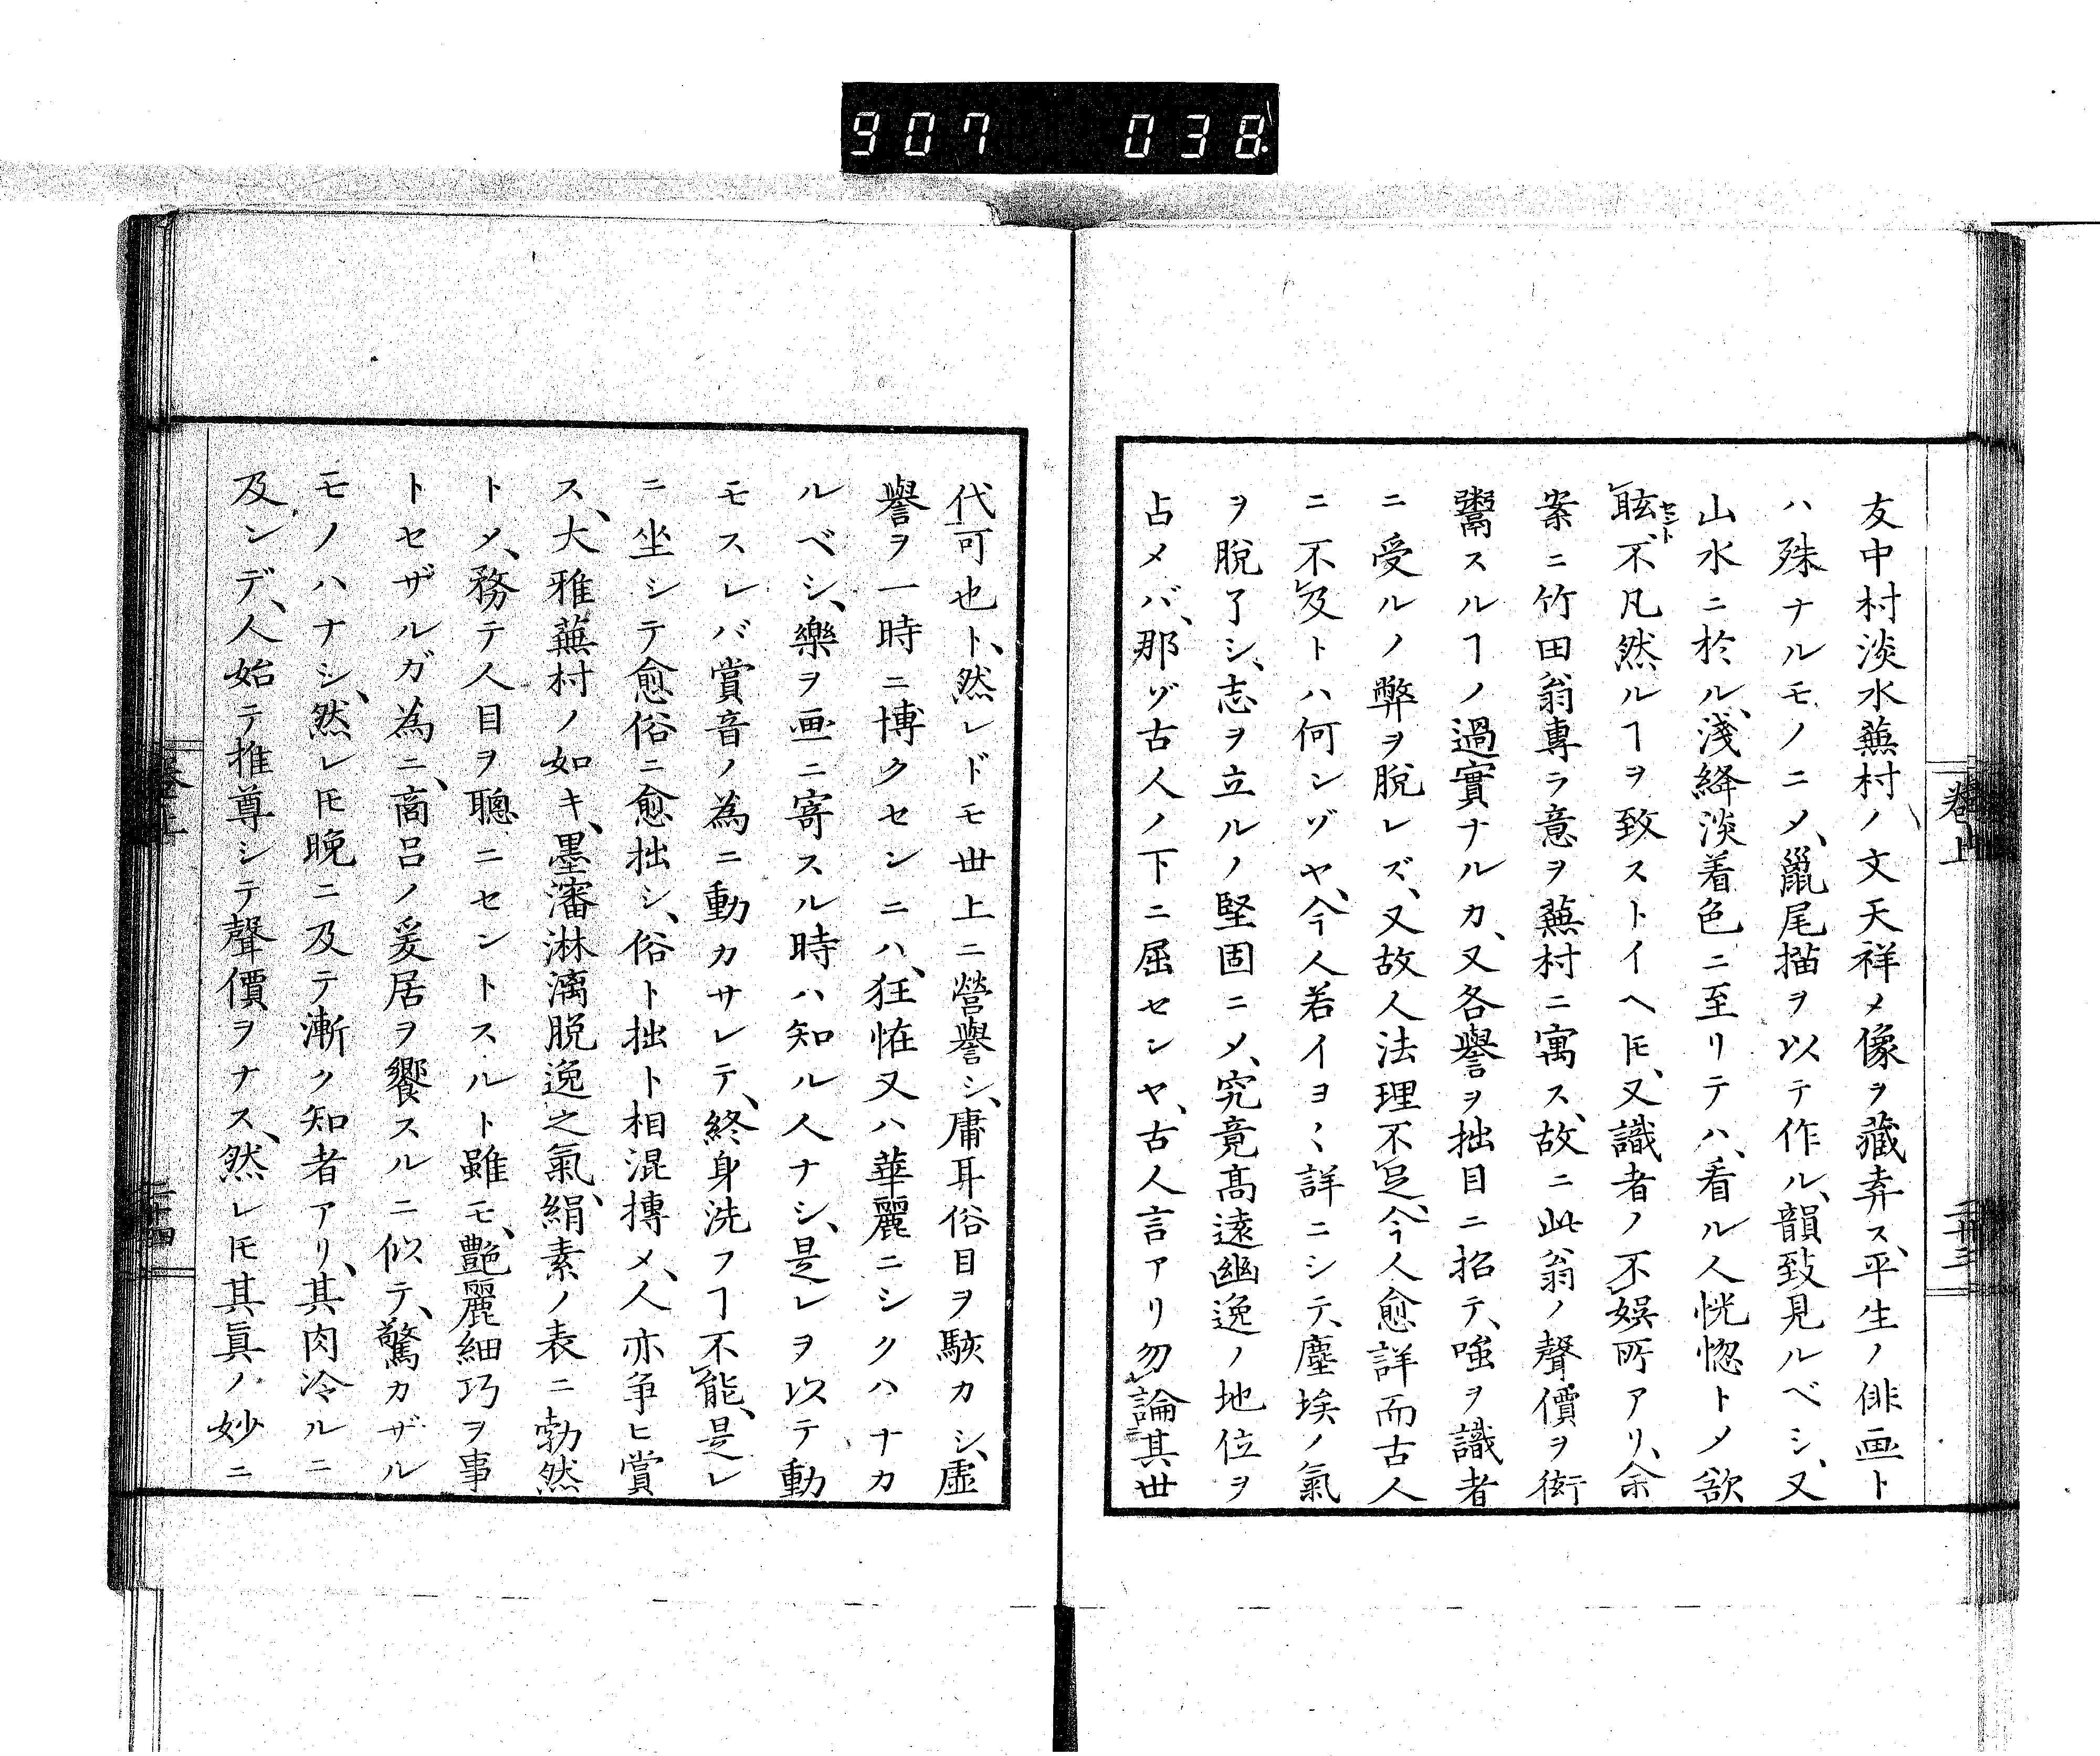 907 038
卷上
二十三
友中村淡水蕪村ノ文天祥メ像ヲ藏弆ス、平生ノ俳画ト
ハ殊ナルモノニメ、鼠尾描ヲ以テ作ル、韻致見ルベシ、又
山水ニ於ル、淺絳淡着色ニ至リテハ、看ル人恍惚トメ欲
眩セント、不凡然ルヿヲ致ストイヘ𪜈、又識者ノ不娯所アリ、余
案ニ竹田翁專ラ意ヲ蕪村ニ寓ス、故ニ此翁ノ聲價ヲ衒
鬻スルヿノ過實ナルカ、又各譽ヲ拙目ニ招テ、嗤ヲ識者
ニ受ルノ弊ヲ脱レズ、又故人法理不足、今人愈詳而古人
ニ不及トハ何ンゾヤ、今人若イヨ〻詳ニシテ、塵埃ノ氣
ヲ脱了シ、志ヲ立ルノ堅固ニメ、究竟髙遠幽逸ノ地位ヲ
占メバ、那ゾ古人ノ下ニ屈センヤ、古人言アリ勿論其世
代可也ト、然レドモ世上ニ營譽シ、庸耳俗目ヲ駭カシ、虛
譽ヲ一時ニ博クセンニハ、狂恠又ハ華麗ニシクハナカ
ルベシ、樂ヲ画ニ寄スル時ハ知ル人ナシ、是レヲ以テ動
モスレバ賞音ノ為ニ動カサレテ、終身洗フヿ不能、是レ
ニ坐シテ愈俗ニ愈拙シ、俗ト拙ト相混摶メ、人亦争ヒ賞
ス、大雅蕪村ノ如キ、墨瀋淋漓脱逸之氣、絹素ノ表ニ勃然
トメ、務テ人目ヲ聰ニセントスルト雖モ、艶麗細巧ヲ事
トセザルガ為ニ、啇呂ノ爰居ヲ饗スルニ似テ、驚カザル
モノハナシ、然レ𪜈晩ニ及テ漸ク知者アリ、其肉冷ルニ
及ンデ、人始テ推尊シテ聲價ヲナス、然レ𪜈其眞ノ妙ニ
卷上
二十四